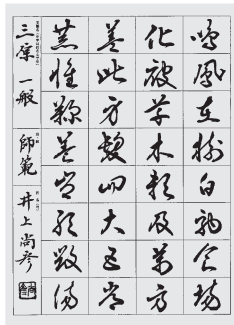 鳴鳳在樹白駒食場
化被草木賴及萬方
蓋此身髮四大五常
恭惟鞠養豈敢毀傷
三席一般 師範 井上尚彦